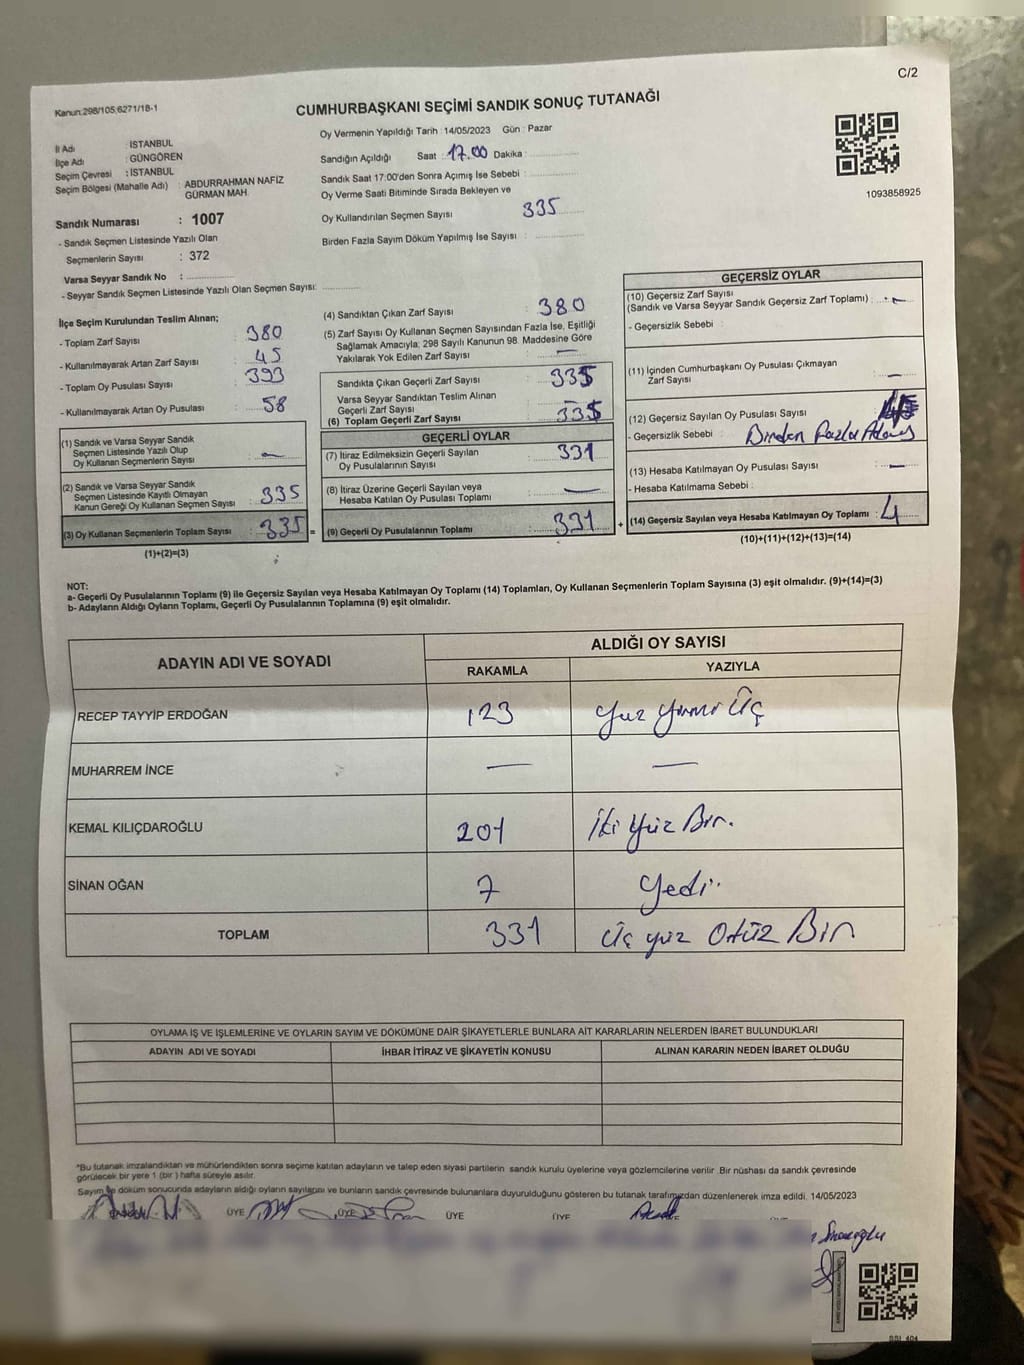 C/2
Kanun:298/105;6271/18-1
CUMHURBAŞKANI SEÇİMİ SANDIK SONUÇ TUTANAĞI
İl Adı : İSTANBUL
İlçe Adı : GÜNGÖREN
Seçim Çevresi : İSTANBUL
Seçim Bölgesi (Mahalle Adı) : ABDURRAHMAN NAFİZ
GÜRMAN MAH.
Sandık Numarası : 1007
- Sandık Seçmen Listesinde Yazılı Olan
Seçmenlerin Sayısı : 372
Varsa Seyyar Sandık No :
- Seyyar Sandık Seçmen Listesinde Yazılı Olan Seçmen Sayısı:
Oy Vermenin Yapıldığı Tarih : 14/05/2023 Gün : Pazar
Sandığın Açıldığı Saat : 17.00 Dakika :
Sandık Saat 17:00'den Sonra Açımış İse Sebebi :
Oy Verme Saati Bitiminde Sırada Bekleyen ve
Oy Kullandırılan Seçmen Sayısı 335
Birden Fazla Sayım Döküm Yapılmış İse Sayısı :
1093858925
İlçe Seçim Kurulundan Teslim Alınan;
- Toplam Zarf Sayısı : 380
- Kullanılmayarak Artan Zarf Sayısı : 45
- Toplam Oy Pusulası Sayısı : 393
- Kullanılmayarak Artan Oy Pusulası : 58
(1) Sandık ve Varsa Seyyar Sandık
Seçmen Listesinde Yazılı Olup
Oy Kullanan Seçmenlerin Sayısı : —
(2) Sandık ve Varsa Seyyar Sandık
Seçmen Listesinde Kayıtlı Olmayan
Kanun Gereği Oy Kullanan Seçmen Sayısı : 335
(3) Oy Kullanan Seçmenlerin Toplam Sayısı : 335 =
(1)+(2)=(3)
(4) Sandıktan Çıkan Zarf Sayısı : 380
(5) Zarf Sayısı Oy Kullanan Seçmen Sayısından Fazla İse, Eşitliği
Sağlamak Amacıyla; 298 Sayılı Kanunun 98. Maddesine Göre
Yakılarak Yok Edilen Zarf Sayısı : —
Sandıkta Çıkan Geçerli Zarf Sayısı : 335
Varsa Seyyar Sandıktan Teslim Alınan
Geçerli Zarf Sayısı : —
(6) Toplam Geçerli Zarf Sayısı : 335
GEÇERLİ OYLAR
(7) İtiraz Edilmeksizin Geçerli Sayılan
Oy Pusulalarının Sayısı : 331
(8) İtiraz Üzerine Geçerli Sayılan veya
Hesaba Katılan Oy Pusulası Toplamı : —
(9) Geçerli Oy Pusulalarının Toplamı : 331 +
GEÇERSİZ OYLAR
(10) Geçersiz Zarf Sayısı
(Sandık ve Varsa Seyyar Sandık Geçersiz Zarf Toplamı) : —
- Geçersizlik Sebebi :
(11) İçinden Cumhurbaşkanı Oy Pusulası Çıkmayan
Zarf Sayısı : —
(12) Geçersiz Sayılan Oy Pusulası Sayısı :
- Geçersizlik Sebebi : Birden Fazla
(13) Hesaba Katılmayan Oy Pusulası Sayısı : —
- Hesaba Katılmama Sebebi :
(14) Geçersiz Sayılan veya Hesaba Katılmayan Oy Toplamı : 4
(10)+(11)+(12)+(13)=(14)
NOT:
a- Geçerli Oy Pusulalarının Toplamı (9) ile Geçersiz Sayılan veya Hesaba Katılmayan Oy Toplamı (14) Toplamları, Oy Kullanan Seçmenlerin Toplam Sayısına (3) eşit olmalıdır. (9)+(14)=(3)
b- Adayların Aldığı Oyların Toplamı, Geçerli Oy Pusulalarının Toplamına (9) eşit olmalıdır.
ADAYIN ADI VE SOYADI
ALDIĞI OY SAYISI
RAKAMLA YAZIYLA
RECEP TAYYİP ERDOĞAN 123 Yüz Yirmi Üç
MUHARREM İNCE — —
KEMAL KILIÇDAROĞLU 201 İki Yüz Bir.
SİNAN OĞAN 7 Yedi.
TOPLAM 331 Üç yüz Otuz Bir
OYLAMA İŞ VE İŞLEMLERİNE VE OYLARIN SAYIM VE DÖKÜMÜNE DAİR ŞİKAYETLERLE BUNLARA AİT KARARLARIN NELERDEN İBARET BULUNDUKLARI
ADAYIN ADI VE SOYADI İHBAR İTİRAZ VE ŞİKAYETİN KONUSU ALINAN KARARIN NEDEN İBARET OLDUĞU
*Bu tutanak imzalandıktan ve mühürlendikten sonra seçime katılan adayların ve talep eden siyasi partilerin sandık kurulu üyelerine veya gözlemcilerine verilir .Bir nüshası da sandık çevresinde
görülecek bir yere 1 (bir ) hafta süreyle asılır.
Sayım ve döküm sonucunda adayların aldığı oyların sayılarını ve bunların sandık çevresinde bulunanlara duyurulduğunu gösteren bu tutanak tarafımızdan düzenlenerek imza edildi. 14/05/2023
ÜYE ÜYE ÜYE ÜYE